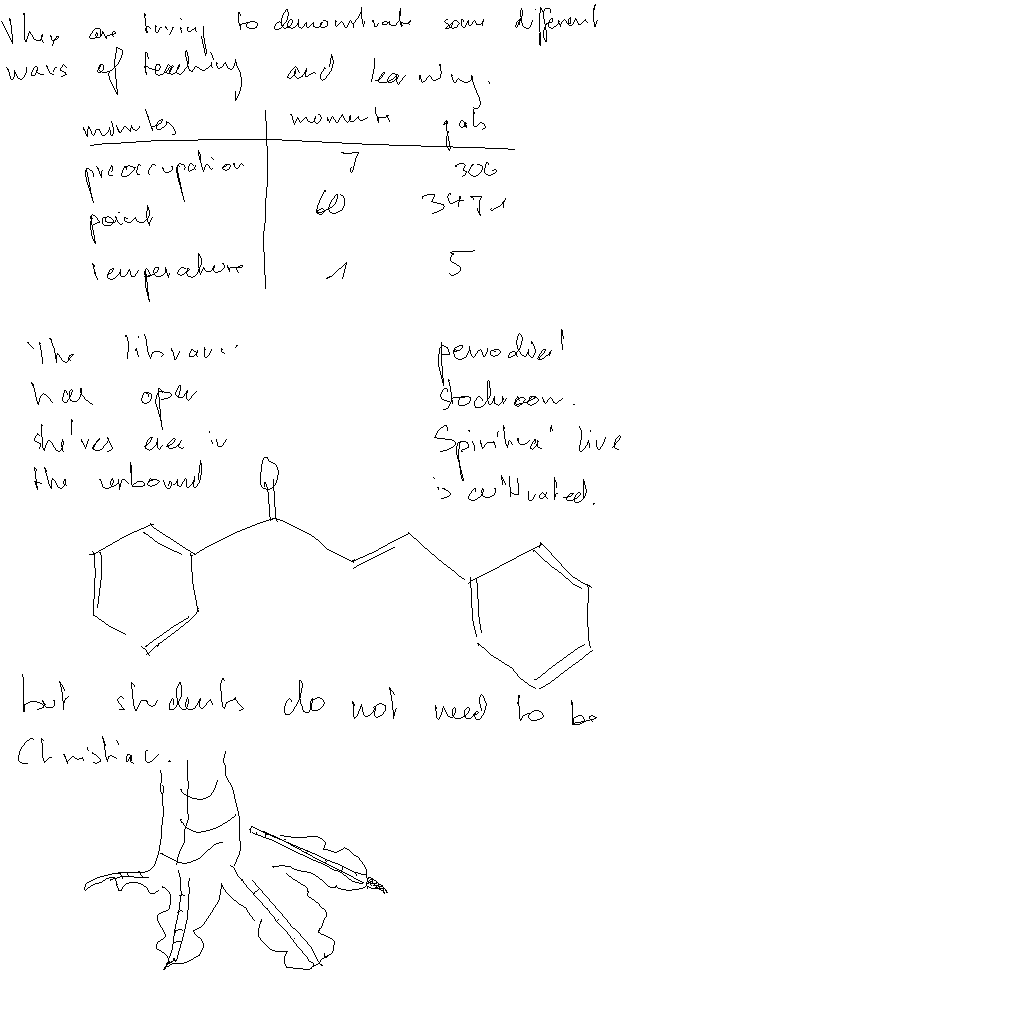 They are trying to demonstrate some different
ways of teaching and learning.
minutes moments gals
preoccupation 7 306
point 60 347.1
temperature 1 5
The library
has open
shelves even in
the unbound
periodical
stockroom.
Spiritual live
is cultivated.
but students do not need to be
Christian.